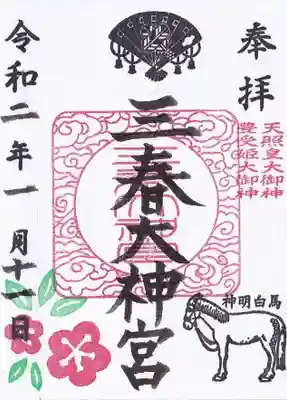 奉拝
天照皇大御神
豊受姫大御神
三春大神宮
令和二年一月十一日
神明白馬